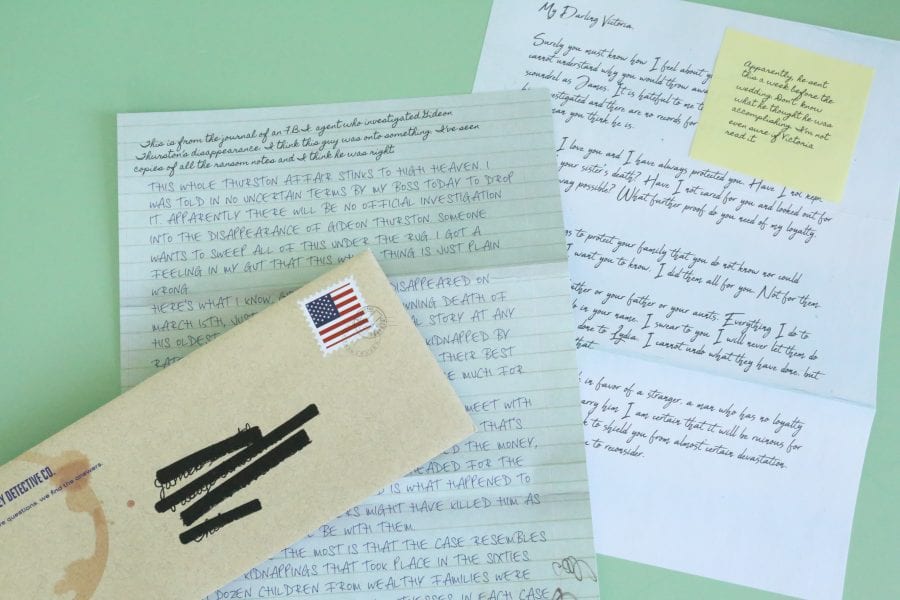 This is from the journal of an F.B.I. agent who investigated Gideon
Thurston's disappearance. I think this guy was onto something. I've seen
copies of all the ransom notes and I think he was right.
THIS WHOLE THURSTON AFFAIR STINKS TO HIGH HEAVEN. I
WAS TOLD IN NO UNCERTAIN TERMS BY MY BOSS TODAY TO DROP
IT. APPARENTLY THERE WILL BE NO OFFICIAL INVESTIGATION
INTO THE DISAPPEARANCE OF GIDEON THURSTON. SOMEONE
WANTS TO SWEEP ALL OF THIS UNDER THE RUG. I GOT A
FEELING IN MY GUT THAT THIS THING IS JUST PLAIN
WRONG.
HERE'S WHAT I KNOW, DISAPPEARED ON
MARCH 15TH, DEATH OF
HIS OLDEST STORY AT ANY
KIDNAPPED BY
THEIR BEST
MUCH FOR
MEET WITH
THAT'S
THE MONEY,
HEADED FOR THE
IS WHAT HAPPENED TO
MIGHT HAVE KILLED HIM AS
BE WITH THEM.
THE MOST IS THAT THE CASE RESEMBLES
KIDNAPPINGS THAT TOOK PLACE IN THE SIXTIES
DOZEN CHILDREN FROM WEALTHY FAMILIES WERE
IN EACH CASE
DETECTIVE CO.
questions, we find the answers.
My Darling Victoria,
Surely you must know how I feel about
cannot understand why you would throw
scoundrel as James. It is hateful to me
investigated and there are no records for
can you think he is.
I love you and I have always protected you. Have I not kept
your sister's death? Have I not cared for you and looked out for
possible? What further proof do you need of my loyalty
to protect your family that you do not know nor could
want you to know. I did them all for you. Not for them
or your father or your aunts. Everything I do to
in your name. I swear to you I will never let them do
done to Lydia. I cannot undo what they have done, but
that
in favor of a stranger, a man who has no loyalty
marry him I am certain that it will be ruinous for
to shield you from almost certain devastation.
to reconsider.
Apparently, he sent
this a week before the
wedding. Don't know
what he thought he was
accomplishing. I'm not
even sure if Victoria
read it